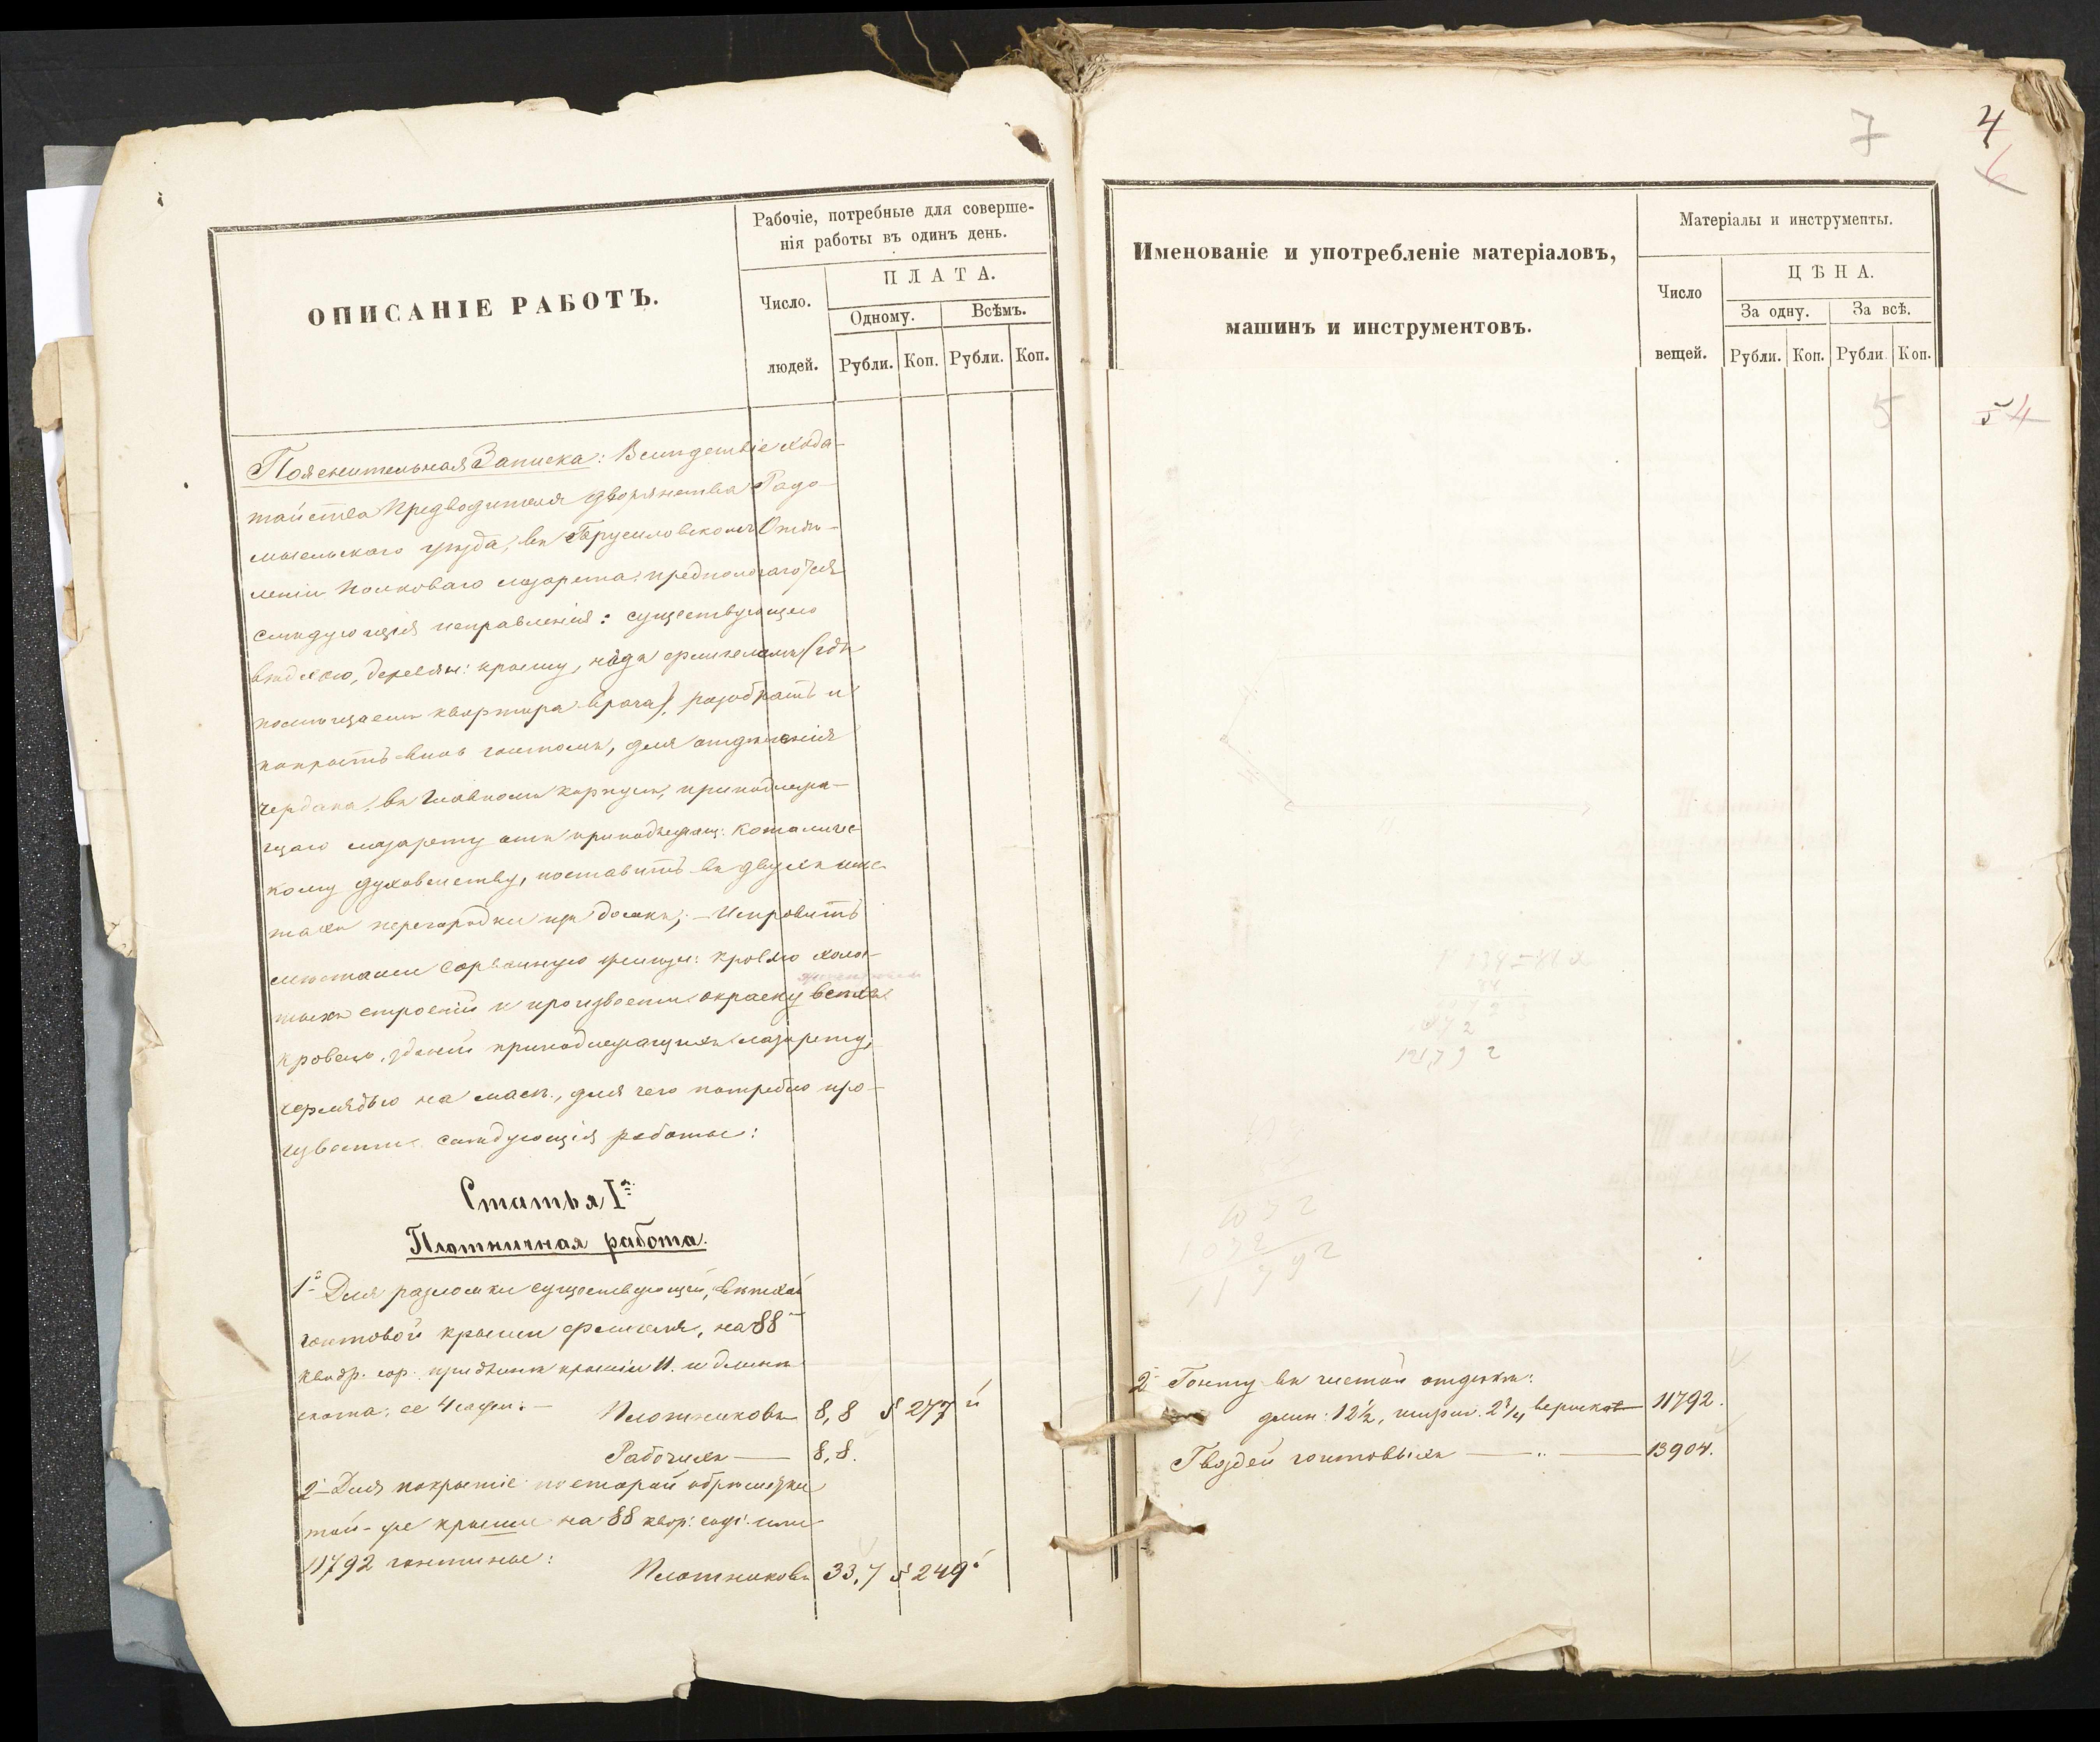 ОПИСАНІЕ РАБОТЪ.
Рабочіе, потребные для соверше-
нія работы въ одинъ день.
Число.
людей.
ПЛАТА.
Одному.
Всѣмъ.
Рубли. Коп. Рубли. Коп.
Пояснительная Записка: Вслѣдствіе хода-
тайства Предводителя дворянства Радо-
мысльскаго уѣзда, въ Брусиловскомъ Отдѣ-
леніи Полковаго лазарета, предполагаются
слѣдующія исправленія: существующею
ветхою, деревян: крышу, надъ флигелемъ (гдѣ
помѣщаем квартира врача), разобрать и
покрыть вновь гонтомъ, для отдѣленія
чердака, въ Главномъ корпусѣ, принадлежа-
щаго лазарету отъ принадлежащ: католичес-
кому духовенству, поставить въ двухъ мѣс-
тахъ перегородки изъ досокъ; - Исправить
мѣстами сорванную желѣзн: кровлю
строеній и произвести окраску всѣхъ
кровель, зданій принадлежащихъ лазарету,
на масл., для чего потребно про-
извести слѣдующія работы:
Статья Iя
Плотничная работа.
1е Для разломки существующей, ветхой
гонтовой крыши флигеля, на 88
квадр. саж. при длинѣ крыши 11. и длинѣ
ската, ее 4 сажи: —
Плотниковъ 8,8 § 277
Рабочихъ — 8,8.
2е Для покрытіе по старой обрѣшеткѣ
той-же крыши на 88 квар: саж: или
11792 гонтины:
Плотниковъ 33,7 § 249
7
4
6
Именованіе и употребленіе матеріаловъ,
машинъ и инструментовъ.
Матеріалы и инструменты.
Число
вещей.
ЦѢНА.
За одну.
За всѣ.
Рубли. Коп. Рубли Коп.
5
5 4
11792
2е Гонту въ чистой отдѣлкѣ:
длин: 12½, ширин. 2¾ вершковъ 11792.
Гвоздей гонтовыхъ — „ — 13904.